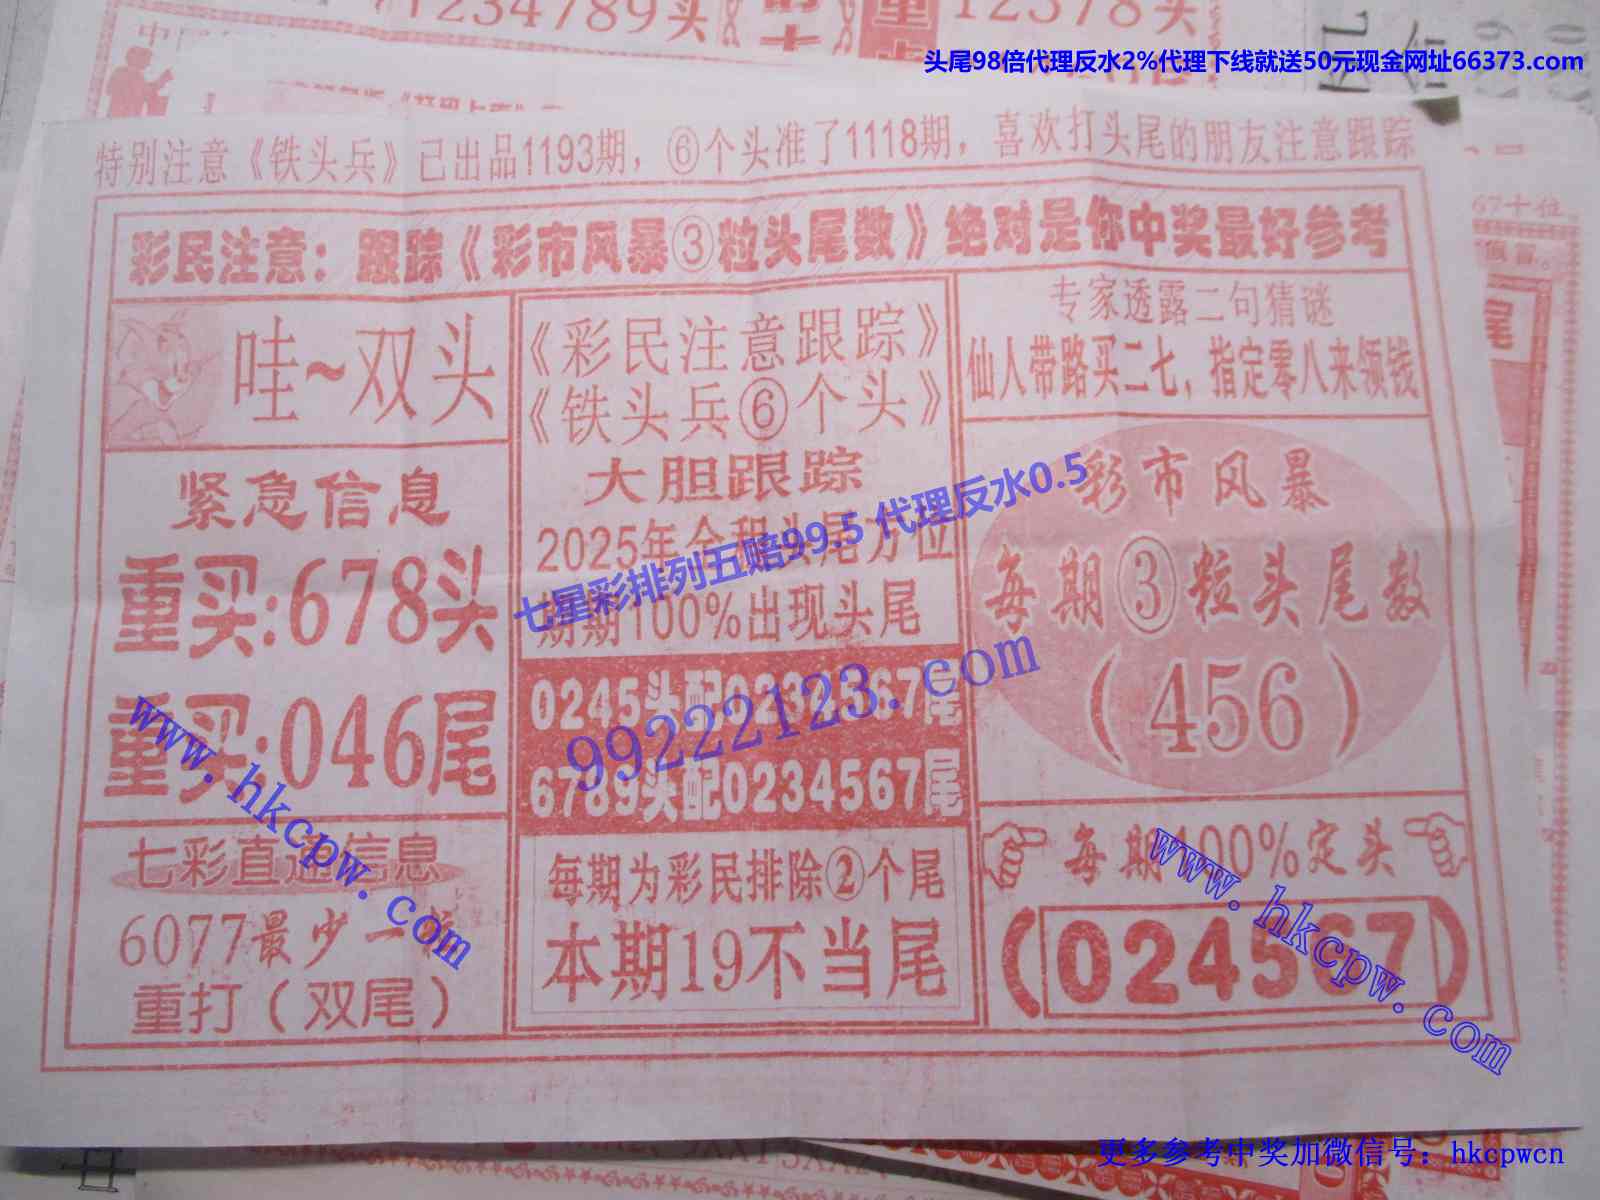 1234789头
12378头
头尾98倍代理反水2%代理下线就送50元现金网址66373.com
特别注意《铁头兵》已出品1193期，⑥个头准了1118期，喜欢打头尾的朋友注意跟踪
67十位
彩民注意：跟踪《彩市风暴③粒头尾数》绝对是你中奖最好参考
哇~双头
紧急信息
重买:678头
重买:046尾
七彩直通信息
6077最少一
重打（双尾）
《彩民注意跟踪》
《铁头兵⑥个头》
大胆跟踪
2025年全程头尾方位
期期100%出现头尾
0245头配0234567尾
6789头配0234567尾
每期为彩民排除②个尾
本期19不当尾
专家透露二句猜谜
仙人带路买二七，指定零八来领钱
彩市风暴
每期③粒头尾数
（456）
每期100%定头
（024567）
七星彩排列五赔99.5 代理反水0.5
99222123.com
www.hkcpw.com
www.hkcpw.com
更多参考中奖加微信号：hkcpwcn